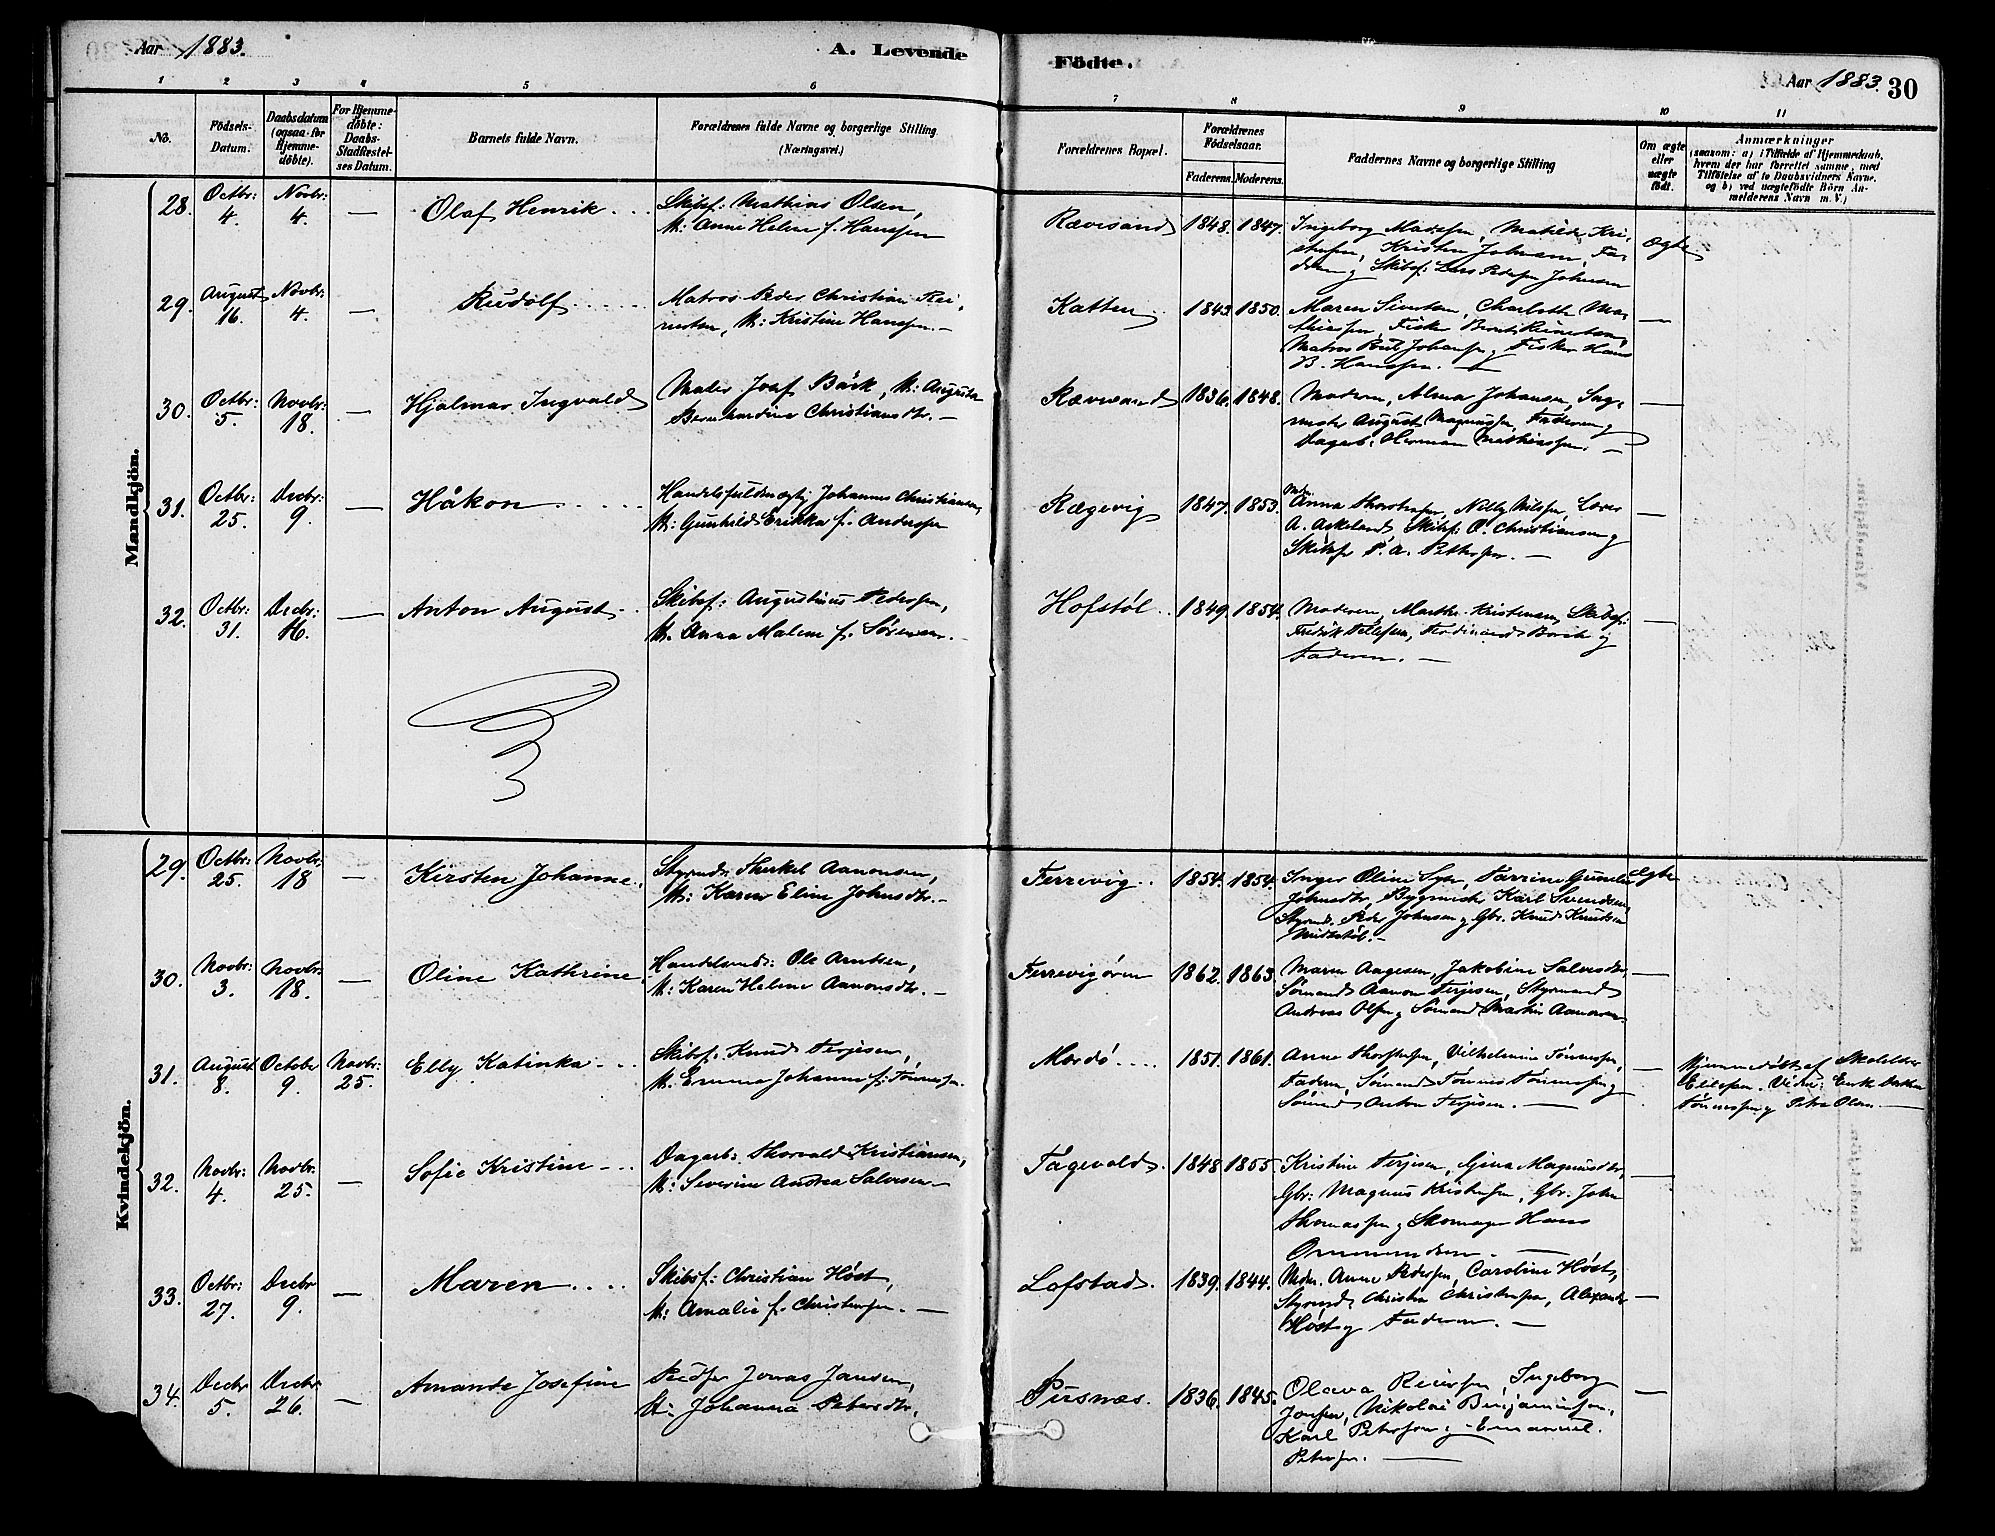 Aar 1883.
A. Levende
Födte.
Aar 1883. 30
1 2 3 4 5 6 7 8 9 10 11
No.
Födsels-Datum.
Daabsdatum (ogsaa for Hjemme-döbte).
For Hjemme-döbte: Daabs-Stadfæstel-ses Datum.
Barnets fulde Navn.
Forældrenes fulde Navne og borgerlige Stilling. (Næringsvei.)
Forældrenes Bopæl.
Forældrenes Födselsaar.
Faderens. Moderens.
Faddernes Navne og borgerlige Stilling
Om ægte eller uægte födt.
Anmærkninger
(saasom: a) i Tilfælde af Hjemmedaab, hvem der har forrettet samme, med Tilföielse af to Daabsvidners Navne, og b) ved uægtefödte Börn Anmelderens Navn m. V.)
Mandkjön.
28. Octbr: 4. Novbr: 4. — Olaf Henrik
Skibsf: Mathias Olsen,
M: Anne Helene f. Hanssen
Rævesand 1848. 1847.
Ingeborg Madssen, Matilde Kri-
stensen, Kristen Johnsen, Fa-
deren og Skibsf: Lars Pedersen Johnsen
ægte
29. August 16. Novbr: 4. — Rudolf
Matros Peder Christian Rei-
nertsen, M: Kristine Hanssen. —
Katten 1843. 1850.
Maren Sivertsen, Charlotte Ma-
thiessen, Fisker Bernt Reinertsen,
Matros Johansen og Fisker Hans
B. Hanssen. —
30. Octbr: 5. Novbr: 18. — Hjalmar Ingvald
Maler Josef Bäck, M: Augusta
Bernhardine Christiansdtr. —
Rævesand 1836. 1848.
Moderen, Alma Johansen, Sag-
mester August Magnussen, Faderen og
Dagarb. Herman Mathiassen. —
31. Octbr: 25. Decbr: 9. — Håkon
Handelsfuldmægtig Johannes Christiansen,
M: Gunhild Erikka f. Andersen
Rægevig 1847. 1853.
Anna Thorstensen, Nilly Nilsen, Lærer
A. Askeland, Skibsf: O. Christiansen og
Skibsf P. A. Pettersen. —
32. Octbr: 31. Decbr: 16. — Anton August
Skibsf: Augustinus Pedersen,
M: Anna Malene f. Sörensen. —
Hofstøl 1849. 1854.
Moderen, Marthe Kristensen, Skibsf:
Fredrik Tellefsen, Ferdinand og
Faderen. —
Kvindekjön.
29. Octbr: 25. Novbr: 18 — Kirsten Johanne
Styrmd: Therkel Aanonsen,
M: Karen Eline Johnsdtr. —
Ferrevig 1854. 1854.
Inger Oline, Tarrine Gunelie
Johnsdtr, Bygmester Karl Svendsen,
Styrmd. Peder Johnsen og Gbr. Knud Knudsen
Midtstøl. —
Egte
30. Novbr: 3. Novbr: 18. — Oline Kathrine
Handelsmd: Ole Arntsen,
M: Karen Helene Aanonsdtr. —
Ferrevigören 1862. 1863.
Maren Aagesen, Jakobine Salvesdtr.
Sömand Aanon Terjesen, Styrmand
Andreas Olsen og Sömand Martin Aanonsen
31. August 8. October 9. Novbr: 25. Elly Katinka
Skibsf. Knud Terjesen,
M. Emma Johanne f. Tönnessen.
Merdö 1851. 1861.
Anne Thorstensen, Vilhelmine Tönnessen,
Faderen, Sömand Tönnes Tönnessen og
Sömand Anton Terjesen. —
Hjemmedöbt af Skolelærer
Eilefsen. Vidner:
Tönnessen og Petra Olsen. —
32. Novbr: 4. Novbr. 25. — Sofie Kristine
Dagarb: Thorvald Kristiansen,
M: Severine Andrea Salvesen —
Fagevold 1848 1855.
Kristine Terjesen, Gina Magnusdtr,
Gbr: Magnus Kristensen, Gbr. John
Thomassen og Skomager Hans
Ommundsen. —
33. Octbr: 27. Decbr 9. — Maren
Skibsf: Christian Höst,
M: Amalie f. Christensen. —
Lofstad 1839. 1844.
Moder. Anne Pedersen, Caroline Höst,
Styrmd. Christen Christensen, Alexander
Höst og Faderen. —
34. Decbr 5. Decbr 26. — Amanda Josefine
Jonas Jansen,
M: Johanna Petersdtr.
Pusnæs. 1836. 1845.
Olava Reiersen, Ingeborg
Jonsen, Nikolai Benjaminsen,
Karl Petersen og Emanuel
Petersen. —